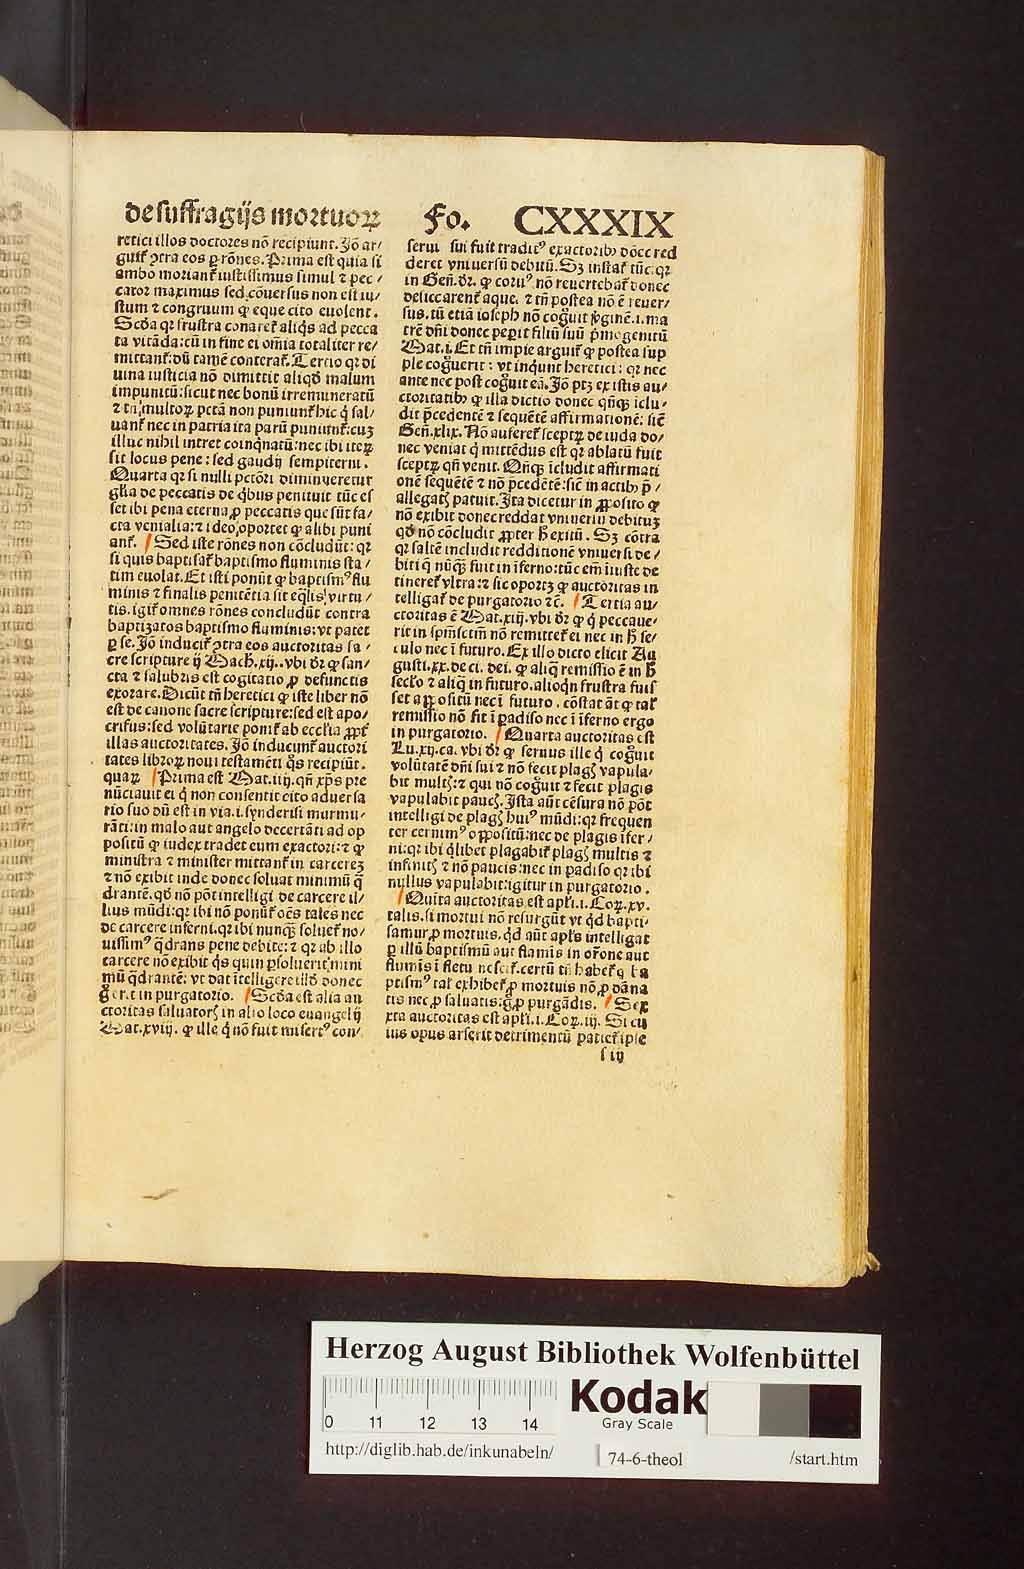 de suffragijs mortuoꝝ Fo. CXXXIX
retici illos doctores nō recipiunt. Jō ar/
guit̃ ↄtra eos ꝑ rōnes. Prima est quia si
ambo moriant̃ iustissimus simul ⁊ pec/
cator maximus sed cōuersus non est iu/
stum ⁊ congruum ꝙ eque cito euolent.
Scd̄a qꝛ frustra conaret̃ aliq̄s ad pecca
ta vitāda: cū in fine ei om̄ia totaliter re/
mittant̃: dū tamē conterat̃. Tercio qꝛ di
uina iusticia nō dimittit aliqd̄ malum
impunitū: sicut nec bonū irremuneratū
⁊ tn̄ multoꝝ pctā non puniunt̃ hic q̇ sal/
uant̃ nec in patria ita parū puniunt̃: cuꝫ
illuc nihil intret coinq̇natū: nec ibi iteꝝ
sit locus pene: sed gaudij sempiterni.
Quarta qꝛ si nulli pctōri diminueretur
gl̃ia de peccatis de q̇bus penituit tūc es
set ibi pena eterna ꝓ peccatis que sūt fa/
cta venialia: ⁊ ideo oportet ꝙ alibi puni
ant̃. Sed iste rōnes non cōcludūt: qꝛ
si quis baptisat̃ baptismo fluminis sta/
tim euolat. Et isti ponūt ꝙ baptismꝰ flu
minis ⁊ finalis penitētia sit eq̄lis virtu/
tis. igit̃ omnes rōnes concludūt contra
baptizatos baptismo fluminis: vt patet
ꝑ se. Jō inducit̃ ↄtra eos auctoritas sa/
cre scripture ij Mach̃. xij.. vbi dr̃ ꝙ san/
cta ⁊ salubris est cogitatio ꝓ defunctis
exorare. Dicūt tn̄ heretici ꝙ iste liber nō
est de canone sacre scripture: sed est apo/
crifus: sed volūtarie ponit̃ ab eccl̃ia ꝓpt̃
illas auctoritates. Jō inducunt̃ auctori
tates libroꝝ noui testamēti q̄s recipiūt.
quaꝝ Prima est Mat. iiij. qn̄ xp̄s pre
nūciauit ei q̇ non consentit cito aduersa
rio suo dū est in via. i. synderisi murmu/
rāti: in malo aut angelo decertāti ad op
positū ꝙ iudex tradet eum exactori: ⁊ ꝙ
ministra ⁊ minister mittant̃ in carcereꝫ
⁊ nō exibit inde donec soluat minimū q̄
drantē. qd̄ nō pōt intelligi de carcere il/
lius mūdi: qꝛ ibi nō ponūt̃ oēs tales nec
de carcere inferni. qꝛ ibi nunqꝫ soluet̃ no/
uissimꝰ q̄drans pene debite: ⁊ qꝛ ab illo
carcere nō exibit q̇s quin ꝑsoluerit mini
mū q̄drantē: vt dat ītelligere illd̄ donec
in purgatorio. Scd̄a est alia au
ctoritas saluatorꝭ in alio loco euangelij
Mat. xviij. ꝙ ille q̇ nō fuit misertꝰ con/
serui sui fuit traditꝰ exactoribꝰ dōec red
deret vniuersū debitū. Sꝫ instat̃ tūc. qꝛ
in Gen̄. dr̃. ꝙ coruꝰ nō reuertebat̃ donec
desiccarent̃ aque. ⁊ tn̄ postea nō ē reuer/
sus. tū etiā ioseph nō cog̃uit ꝟginē. i. ma
trē dn̄i donec peꝑit filiū suū p̄mogenitū
Mat. i. Et tn̄ impie arguit̃ ꝙ postea sup
ple cog̃uerit: vt inq̇unt heretici: qꝛ nec
ante nec post cog̃uit eā. Jō ptꝫ ex istis au/
ctoritatibꝰ ꝙ illa dictio donec qn̄qꝫ īclu/
dit p̄cedentē ⁊ sequētē affirmationē: sic̄
Gen̄. xlix. Nō auferet̃ sceptꝝ de iuda do/
nec veniat q̇ mittēdus est qꝛ ablatū fuit
sceptꝝ qn̄ venit. Qn̄qꝫ īcludit affirmati
onē sequētē ⁊ nō p̄cedētē: sic̄ in actibꝰ p̄/
allegatꝭ patuit. Jta dicetur in ꝓposito ꝙ
nō exibit donec reddat vniuersū debituꝫ
qd̄ nō cōcludit ꝓpter h̄ exitū. Sꝫ cōtra
qꝛ saltē includit redditionē vniuersi de/
biti q̇ nūqꝫ fuit in īferno: tūc em̄ iniuste de
tineret̃ vltra: ⁊ sic oportꝫ ꝙ auctoritas in
telligat̃ de purgatorio ⁊c̄. Tertia au/
ctoritas ē Mat. xij. vbi dr̃ ꝙ q̇ peccaue/
rit in spm̄sctm̄ nō remittet̃ ei nec in h̄ se/
culo nec ī futuro. Ex illo dicto elicit Au
gusti. xx. de ci. dei. ꝙ aliq̄ remissio ē in h̄
secl̃o ⁊ aliq̄ in futuro. alioqn̄ frustra fuis
set apposituū nec ī futuro. cōstat āt ꝙ tal̃
remissio nō fit ī padiso nec ī īferno ergo
in purgatorio. Quarta auctoritas est
Lu. xij. ca. vbi dr̃ ꝙ seruus ille q̇ cog̃uit
volūtatē dn̄i sui ⁊ nō fecit plagꝭ vapula/
bit multꝭ: ⁊ qui nō cog̃uit ⁊ fecit plagis
vapulabit paucꝭ. Jsta aūt cēsura nō pōt
intelligi de plagꝭ huiꝰ mūdi: qꝛ frequen
ter cernimꝰ oppositū: nec de plagis īfer/
ni: qꝛ ibi q̇libet plagabit̃ plagꝭ multis ⁊
infinitꝭ ⁊ nō paucis: nec in padiso qꝛ ibi
nullus vapulabit: igitur in purgatorio.
Quīta auctoritas est apl̃i. i. Coꝝ. xv.
talis. si mortui nō resurgūt vt qd̄ bapti/
samur ꝓ mortuis. qd̄ aūt apl̃s intelligat
ꝑ illū baptismū aut flamīs in or̄one aut
flumīs ī fletu nescit̃. certū tn̄ habet̃ ꝙ ba
ptismꝰ tal̃ exhibet̃ ꝓ mortuis nō ꝓ dāna
tis nec ꝓ saluatis: g̃ ꝓ purgādis. Sex
xta auctoritas est apl̃i. i. Coꝝ. iij. Si cu
ius opus arserit detrimentū patiet̃ ipse
s iij
Herzog August Bibliothek Wolfenbüttel
Kodak
Gray Scale
0 11 12 13 14
http://diglib.hab.de/inkunabeln/ 74-6-theol /start.htm